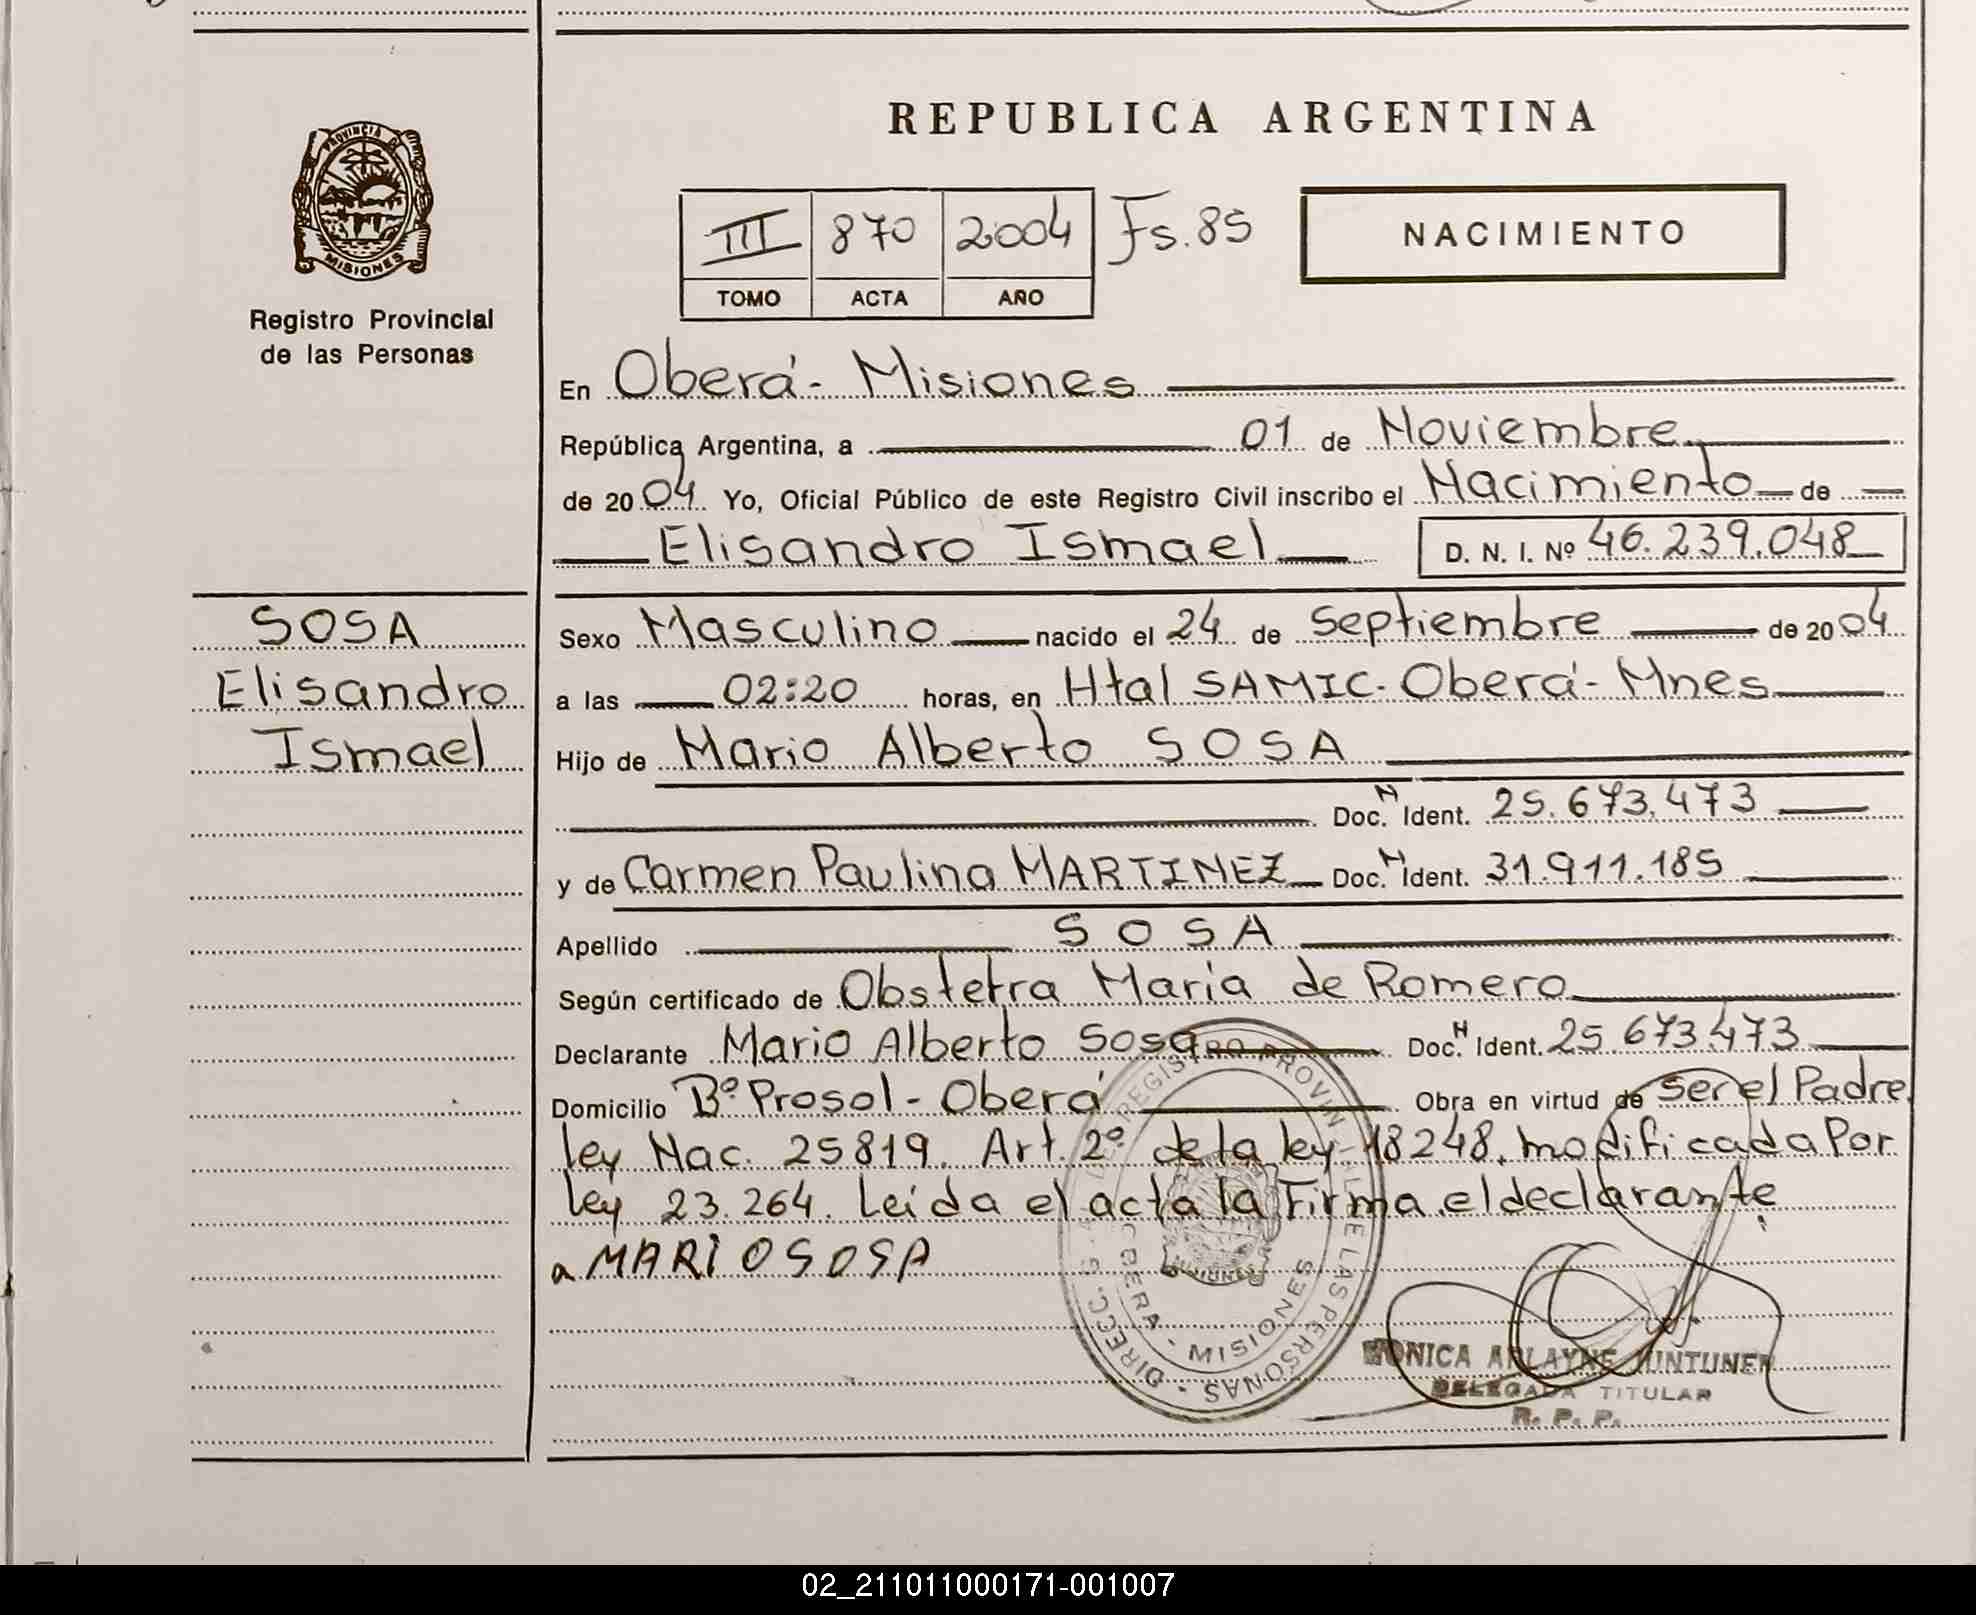 REPUBLICA ARGENTINA
PROVINCIA DE
MISIONES
Registro Provincial
de las Personas
III 870 2004 Fs. 85
TOMO ACTA AÑO
NACIMIENTO
En Oberá - Misiones
República Argentina, a 01 de Noviembre
de 2004 Yo, Oficial Público de este Registro Civil inscribo el Nacimiento de
Elisandro Ismael D. N. I. Nº 46.239.048
SOSA
Elisandro
Ismael
Sexo Masculino nacido el 24 de Septiembre de 2004
a las 02:20 horas, en Htal SAMIC - Oberá - Mnes
Hijo de Mario Alberto SOSA
Doc. N Ident. 25.673.473
y de Carmen Paulina MARTINEZ Doc. N Ident. 31.911.185
Apellido SOSA
Según certificado de Obstetra María de Romero
Declarante Mario Alberto Sosa Doc. N Ident. 25.673.473
Domicilio Bº Prosol - Oberá Obra en virtud de ser el Padre
Ley Nac. 25819. Art. 2º de la ley 18248, modificada Por
Ley 23.264. Leída el acta la Firma el declarante
MARIO SOSA
MISIONES
MONICA ARLAYNE
DELEGADA TITULAR
R. P. P.
02_211011000171-001007